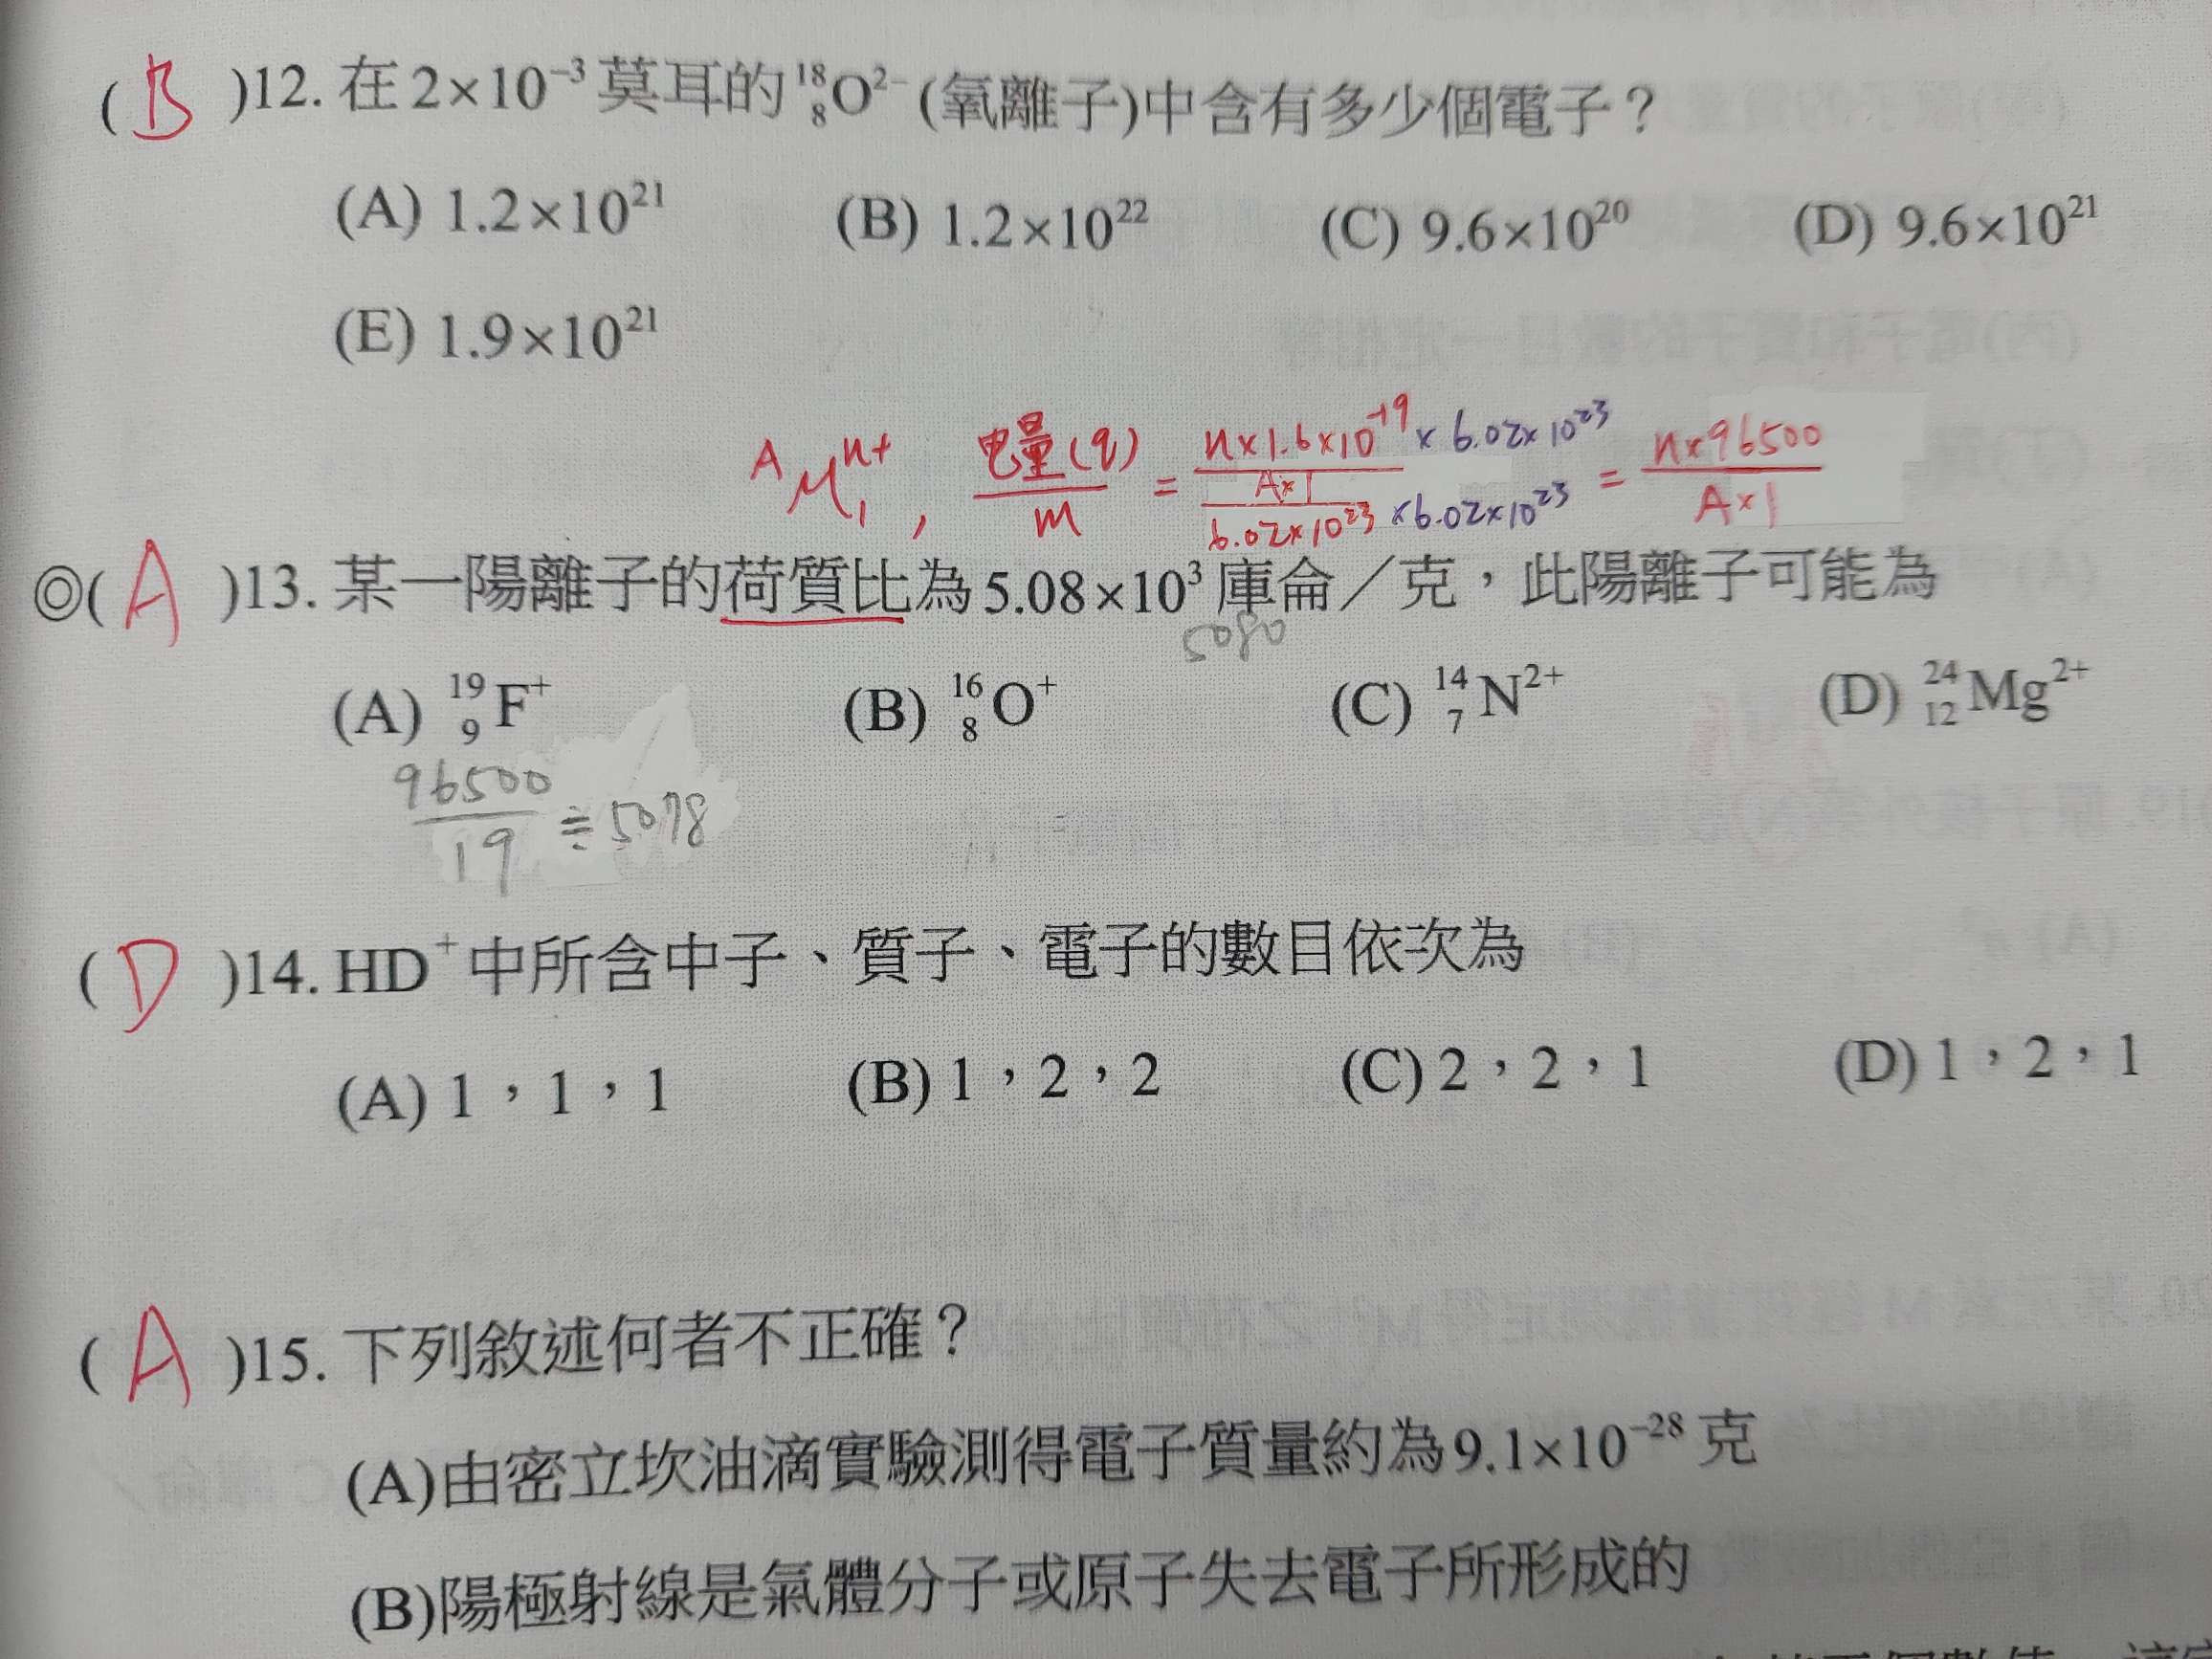 ( B )12. 在 2×10⁻³ 莫耳的 ¹⁸₈O²⁻ (氧離子)中含有多少個電子？
(A) 1.2×10²¹ (B) 1.2×10²² (C) 9.6×10²⁰ (D) 9.6×10²¹
(E) 1.9×10²¹
ᴬM₁ⁿ⁺ , 电量(q)/m = (n×1.6×10⁻¹⁹ × 6.02×10²³)/((A×1)/(6.02×10²³) ×6.02×10²³) = (n×96500)/(A×1)
◎( A )13. 某一陽離子的荷質比為 5.08×10³ 庫侖／克，此陽離子可能為
5080
(A) ¹⁹₉F⁺ (B) ¹⁶₈O⁺ (C) ¹⁴₇N²⁺ (D) ²⁴₁₂Mg²⁺
96500/19 ≒ 5078
( D )14. HD⁺ 中所含中子、質子、電子的數目依次為
(A) 1，1，1 (B) 1，2，2 (C) 2，2，1 (D) 1，2，1
( A )15. 下列敘述何者不正確？
(A)由密立坎油滴實驗測得電子質量約為 9.1×10⁻²⁸ 克
(B)陽極射線是氣體分子或原子失去電子所形成的